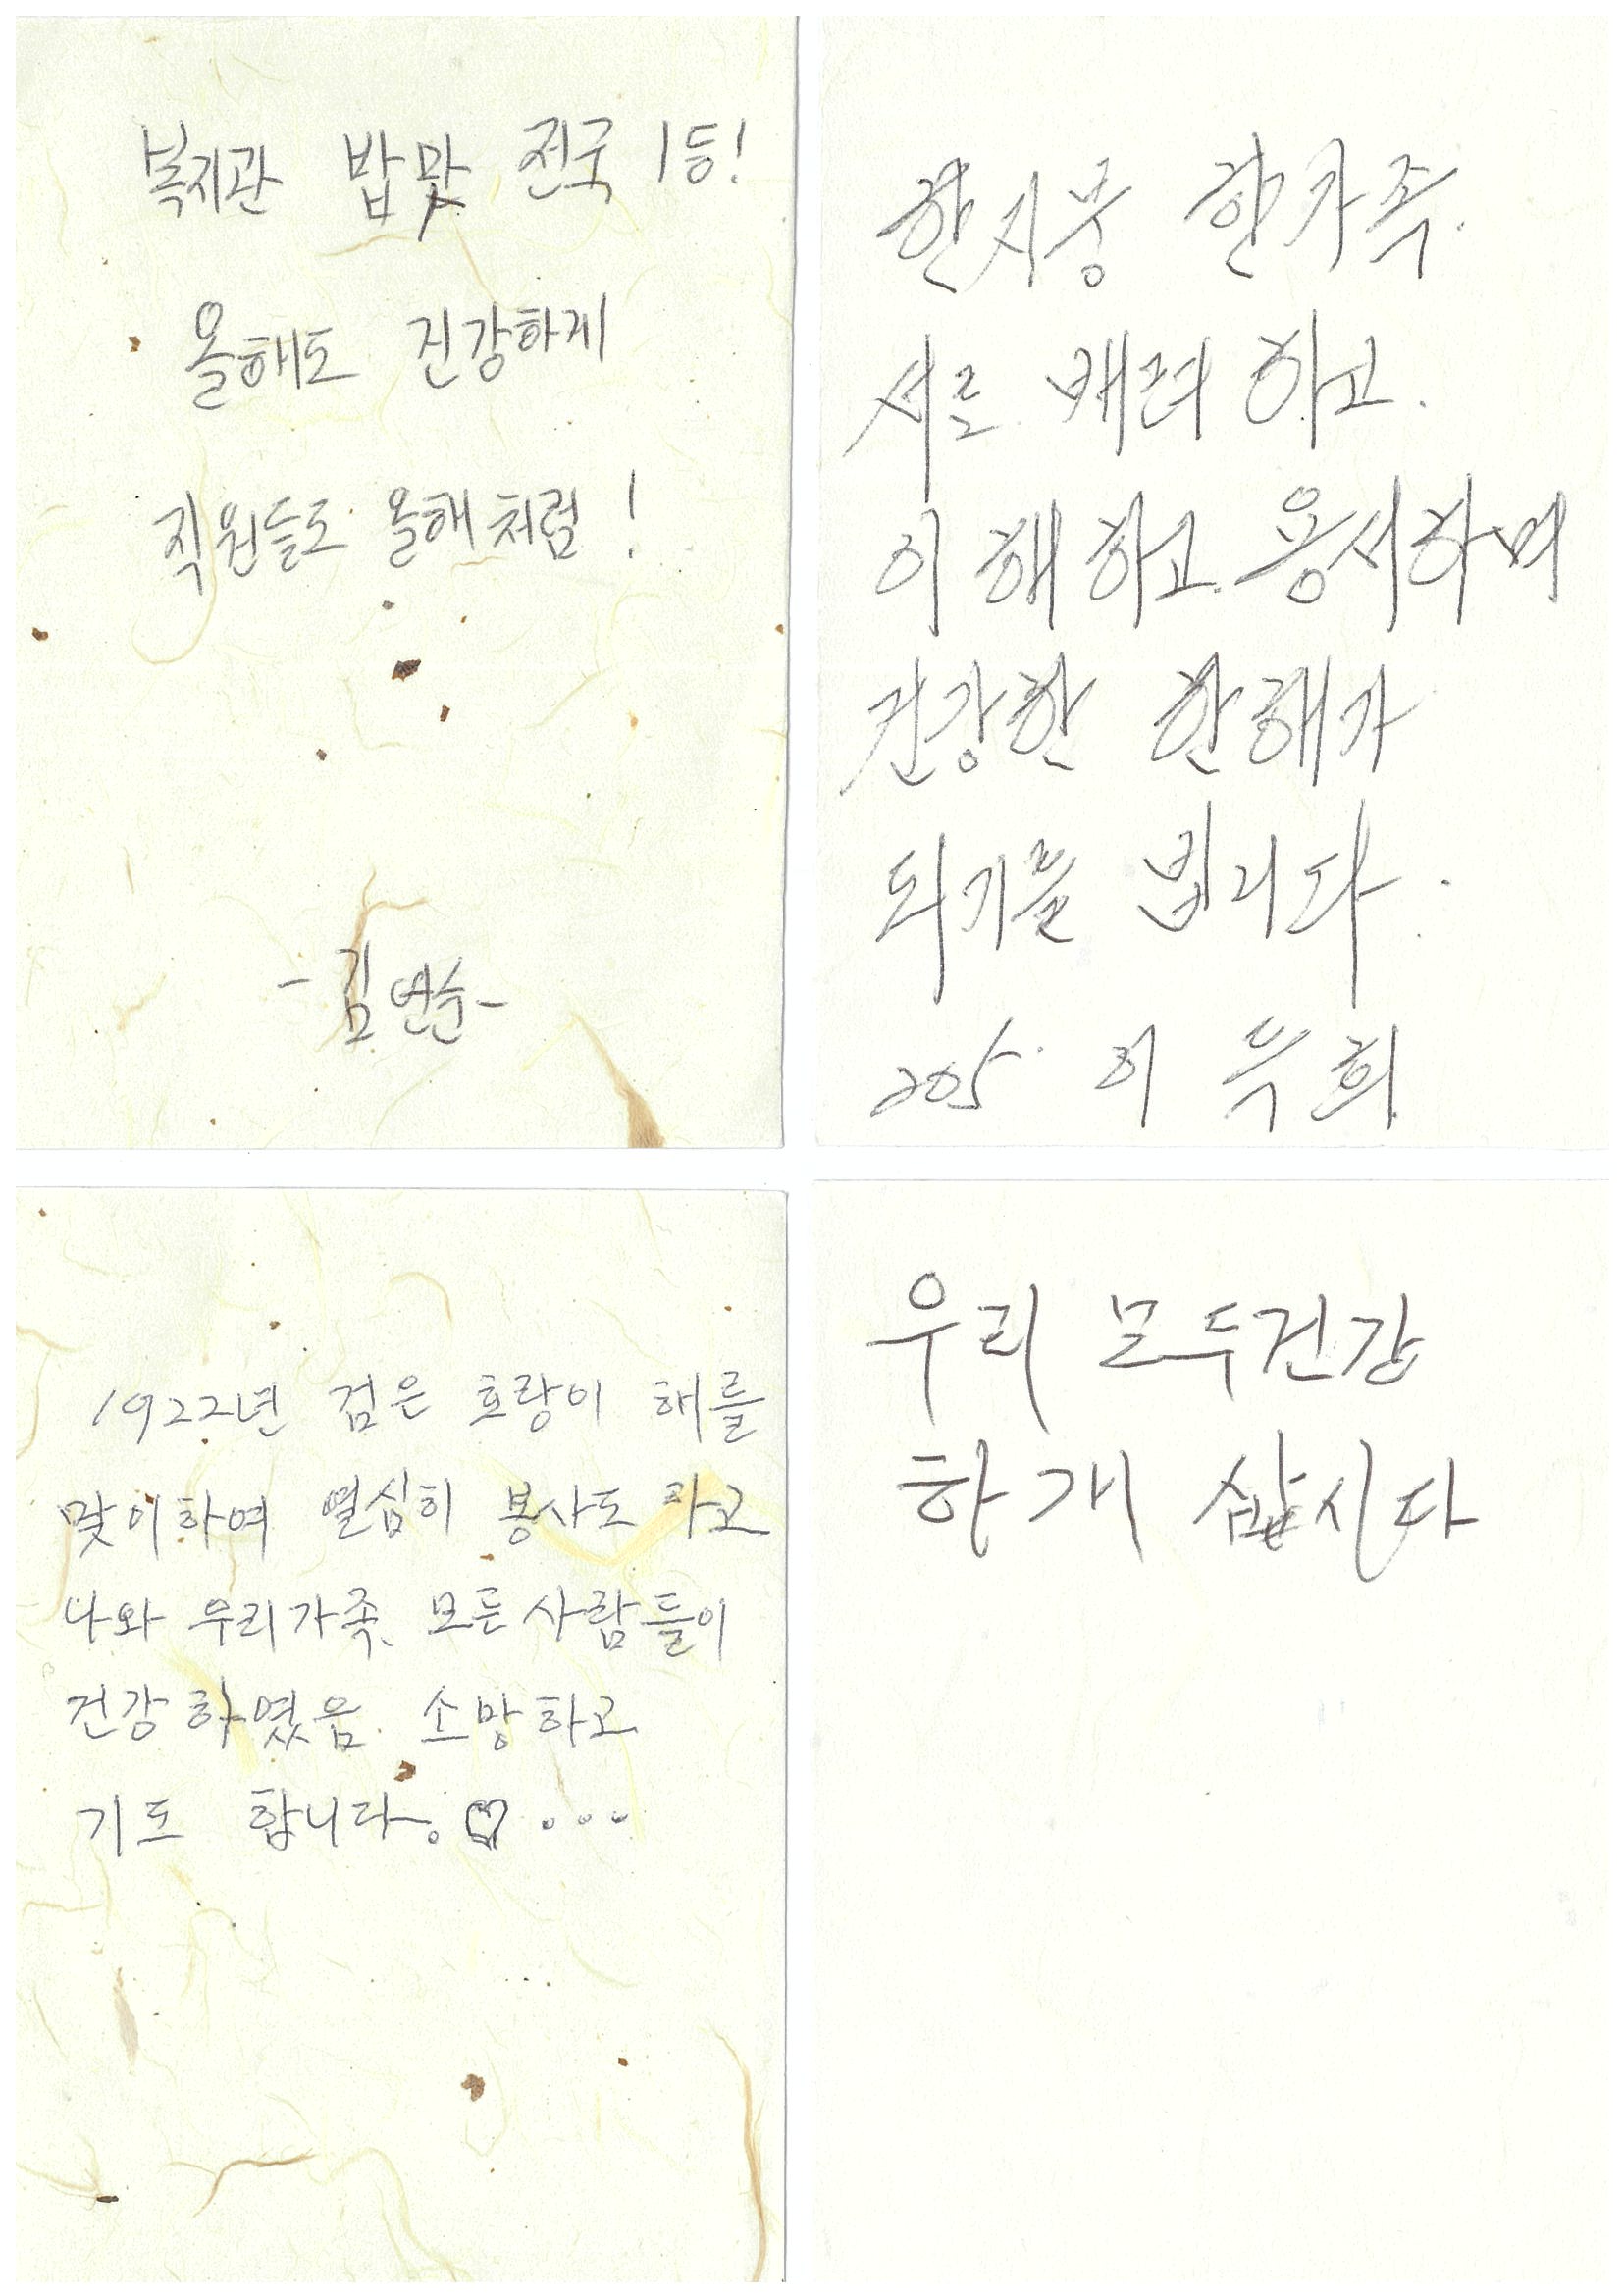 복지관 밥맛 전국 1등!
올해도 건강하게
직원들도 올해처럼!
-김연순-
한지붕 한가족.
서로 배려 하고.
이해하고. 용서하며
건강한 한해가
되기를 빕니다.
205. 이 희
1922년 검은 호랑이 해를
맞이하여 열심히 봉사도 하고
나와 우리가족, 모든사람들이
건강하였음 소망하고
기도 합니다. ♡...
우리 모두건강
하게 삽시다